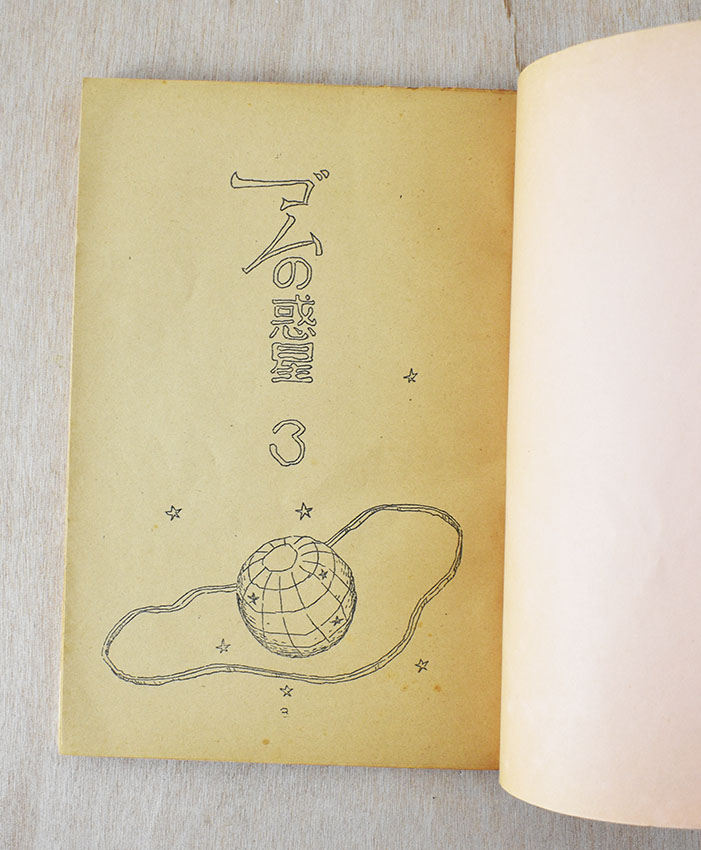 ゴムの惑星 3
3